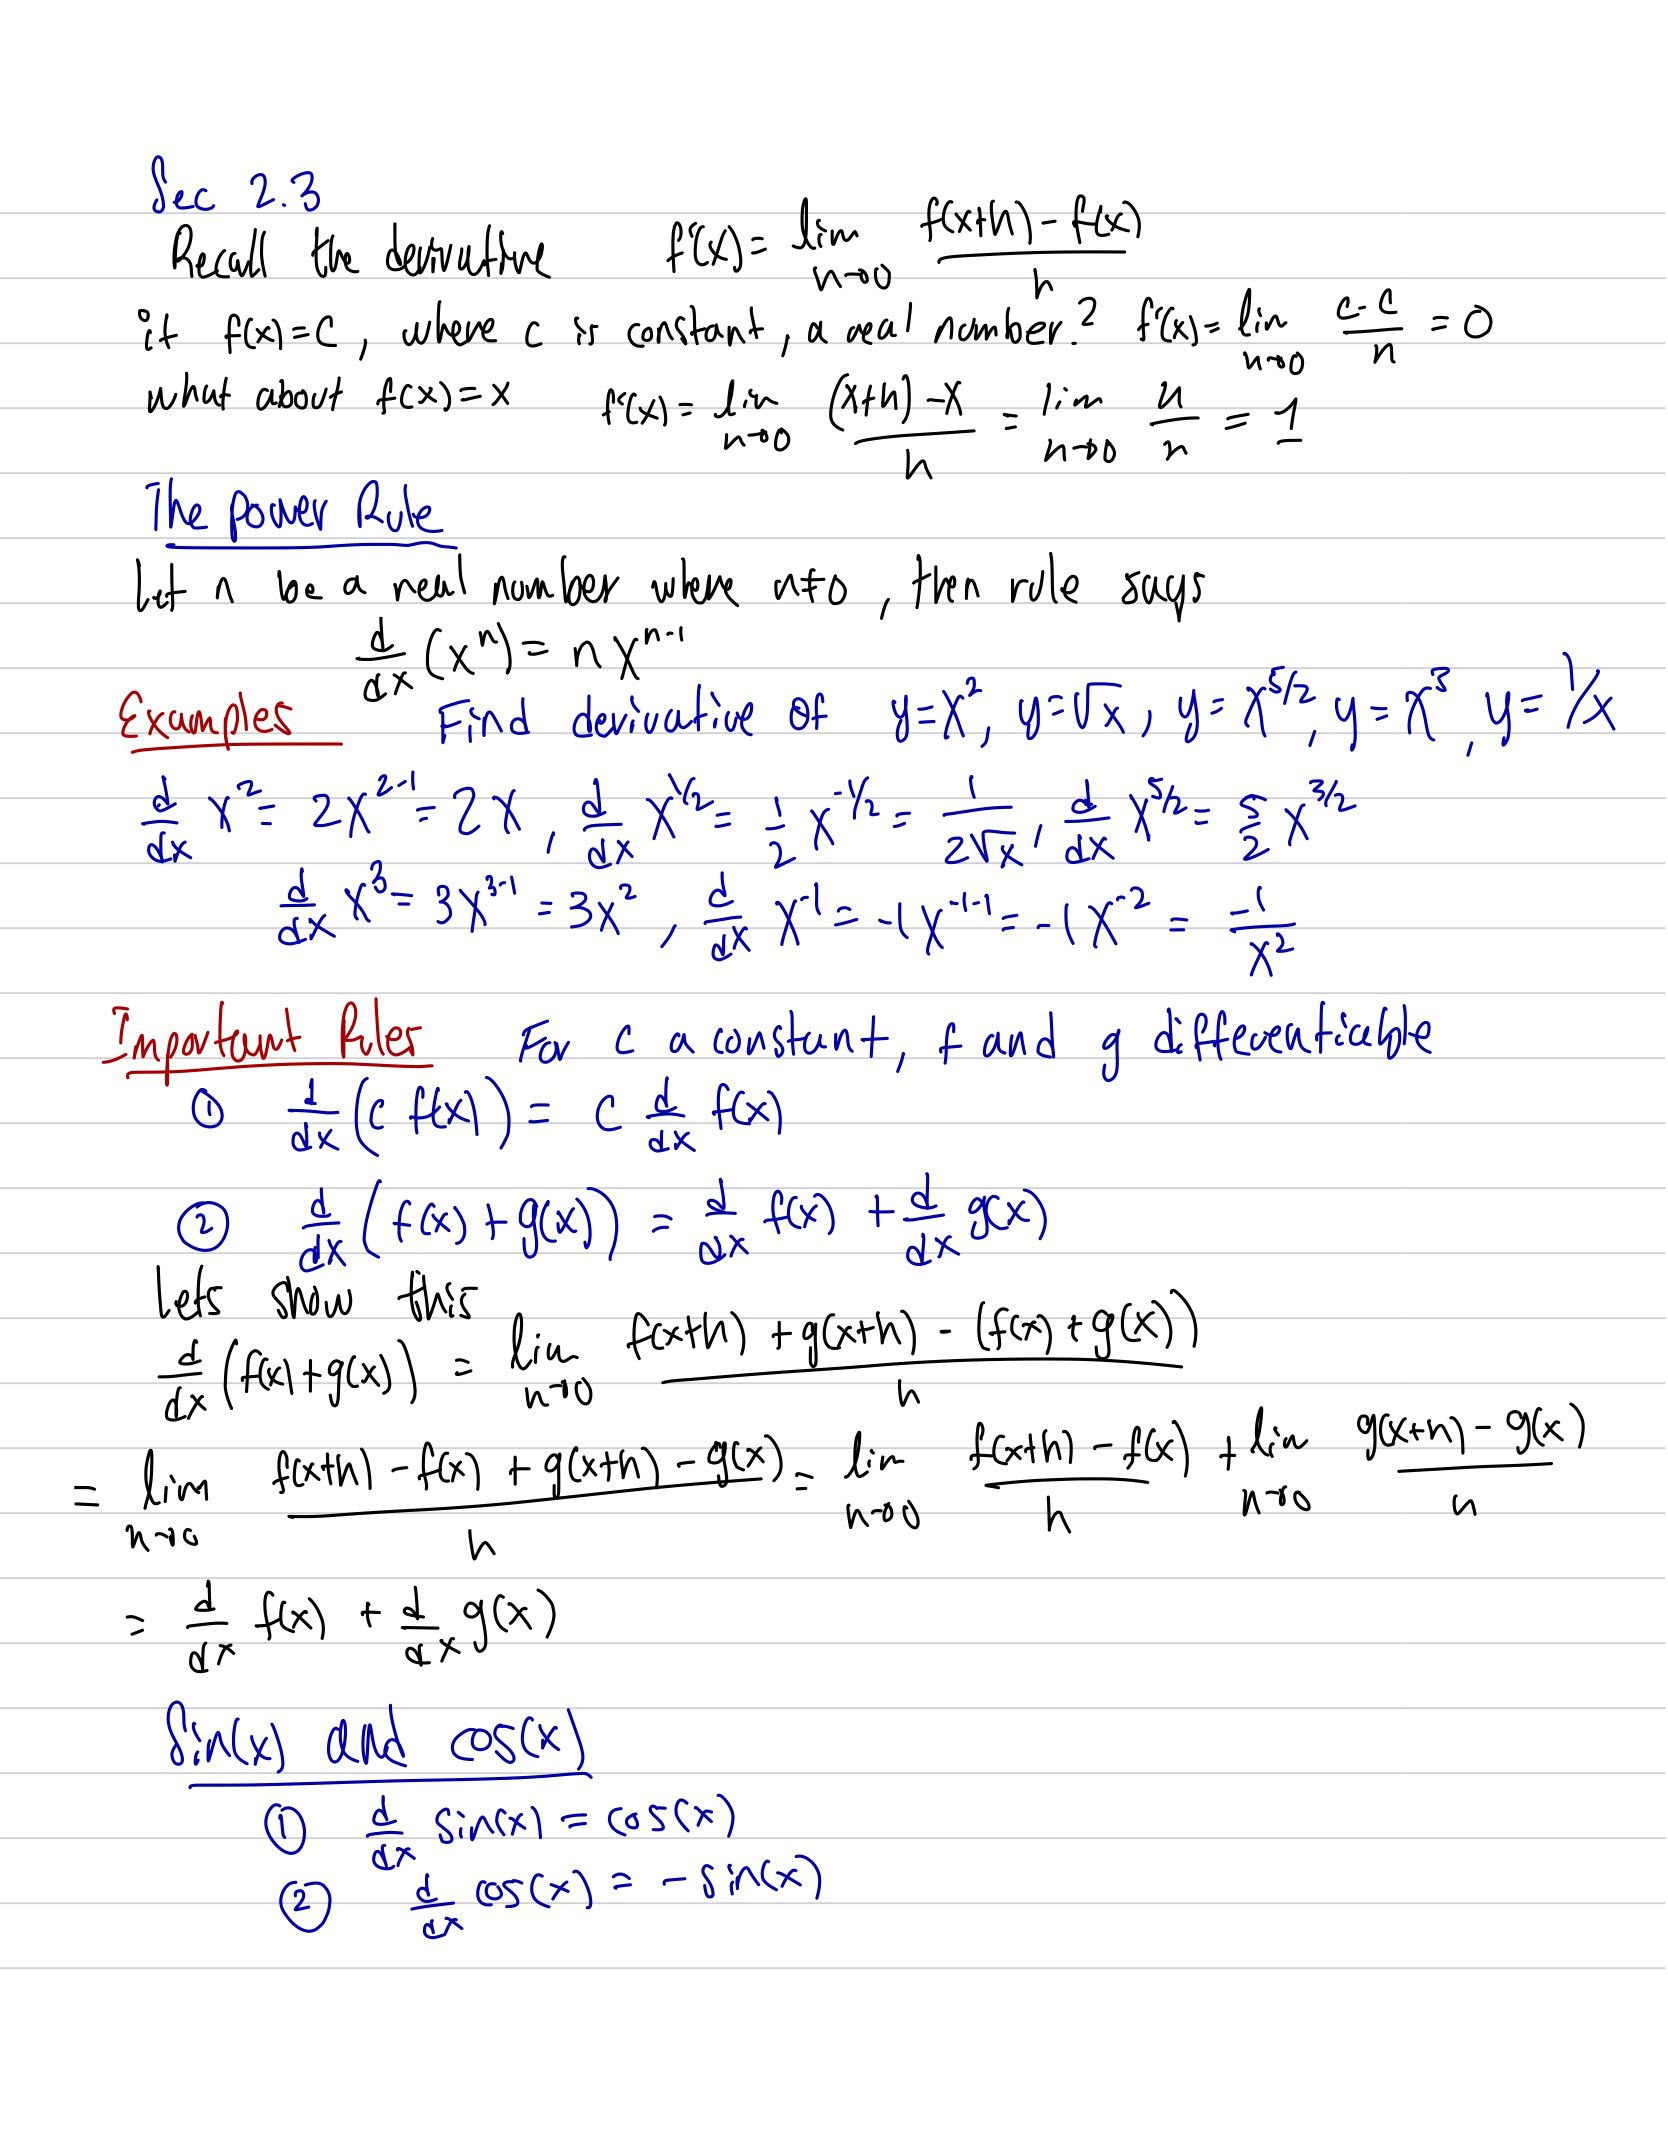 Sec 2.3
Recall the derivative f'(x) = lim h→0 (f(x+h) - f(x))/h
if f(x) = c, where c is constant, a real number? f'(x) = lim h→0 (c-c)/h = 0
what about f(x) = x f'(x) = lim h→0 ((x+h) - x)/h = lim h→0 h/h = 1
The power Rule
Let n be a real number where n≠0, then rule says
d/dx (x^n) = n x^(n-1)
Examples Find derivative of y=x^2, y=√x, y=x^(5/2), y=x^3, y=1/x
d/dx x^2 = 2x^(2-1) = 2x, d/dx x^(1/2) = 1/2 x^(-1/2) = 1/(2√x), d/dx x^(5/2) = 5/2 x^(3/2)
d/dx x^3 = 3x^(3-1) = 3x^2, d/dx x^(-1) = -1x^(-1-1) = -1x^(-2) = -1/x^2
Important Rules For c a constant, f and g differentiable
① d/dx (c f(x)) = c d/dx f(x)
② d/dx (f(x) + g(x)) = d/dx f(x) + d/dx g(x)
Lets show this
d/dx (f(x)+g(x)) = lim h→0 (f(x+h) + g(x+h) - (f(x) + g(x)))/h
= lim h→0 (f(x+h) - f(x) + g(x+h) - g(x))/h = lim h→0 (f(x+h) - f(x))/h + lim h→0 (g(x+h) - g(x))/h
= d/dx f(x) + d/dx g(x)
Sin(x) and cos(x)
① d/dx sin(x) = cos(x)
② d/dx cos(x) = -sin(x)